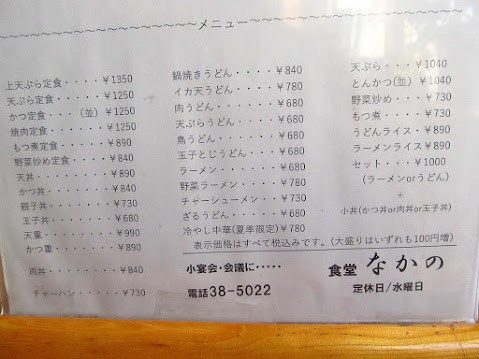 メニュー
上天ぷら定食・・・・￥1350
天ぷら定食・・・・・￥1250
かつ定食・・・(並)￥1250
焼肉定食・・・・・・￥1250
もつ煮定食・・・・・￥890
野菜炒め定食・・・・￥840
天丼・・・・・・・・￥890
かつ丼・・・・・・・￥840
親子丼・・・・・・・￥730
玉子丼・・・・・・・￥680
天重・・・・・・・・￥990
かつ重・・・・・・・￥890
肉丼・・・・・・・・￥840
チャーハン・・・・・￥730
鍋焼きうどん・・・・￥840
イカ天うどん・・・・￥780
肉うどん・・・・・・￥680
天ぷらうどん・・・・￥680
鳥うどん・・・・・・￥680
玉子とじうどん・・・￥680
ラーメン・・・・・・￥680
野菜ラーメン・・・・￥780
チャーシューメン・・￥730
ざるうどん・・・・・￥680
冷やし中華(夏季限定)￥780
天ぷら・・・・￥1040
とんかつ(並)￥1040
野菜炒め・・・￥730
もつ煮・・・・￥730
うどんライス・￥890
ラーメンライス￥890
セット・・・￥1000
(ラーメンorうどん)
+
小丼(かつ丼or肉丼or玉子丼)
表示価格はすべて税込みです。(大盛りはいずれも100円増)
小宴会・会議に・・・・・
電話38-5022
食堂 なかの
定休日/水曜日